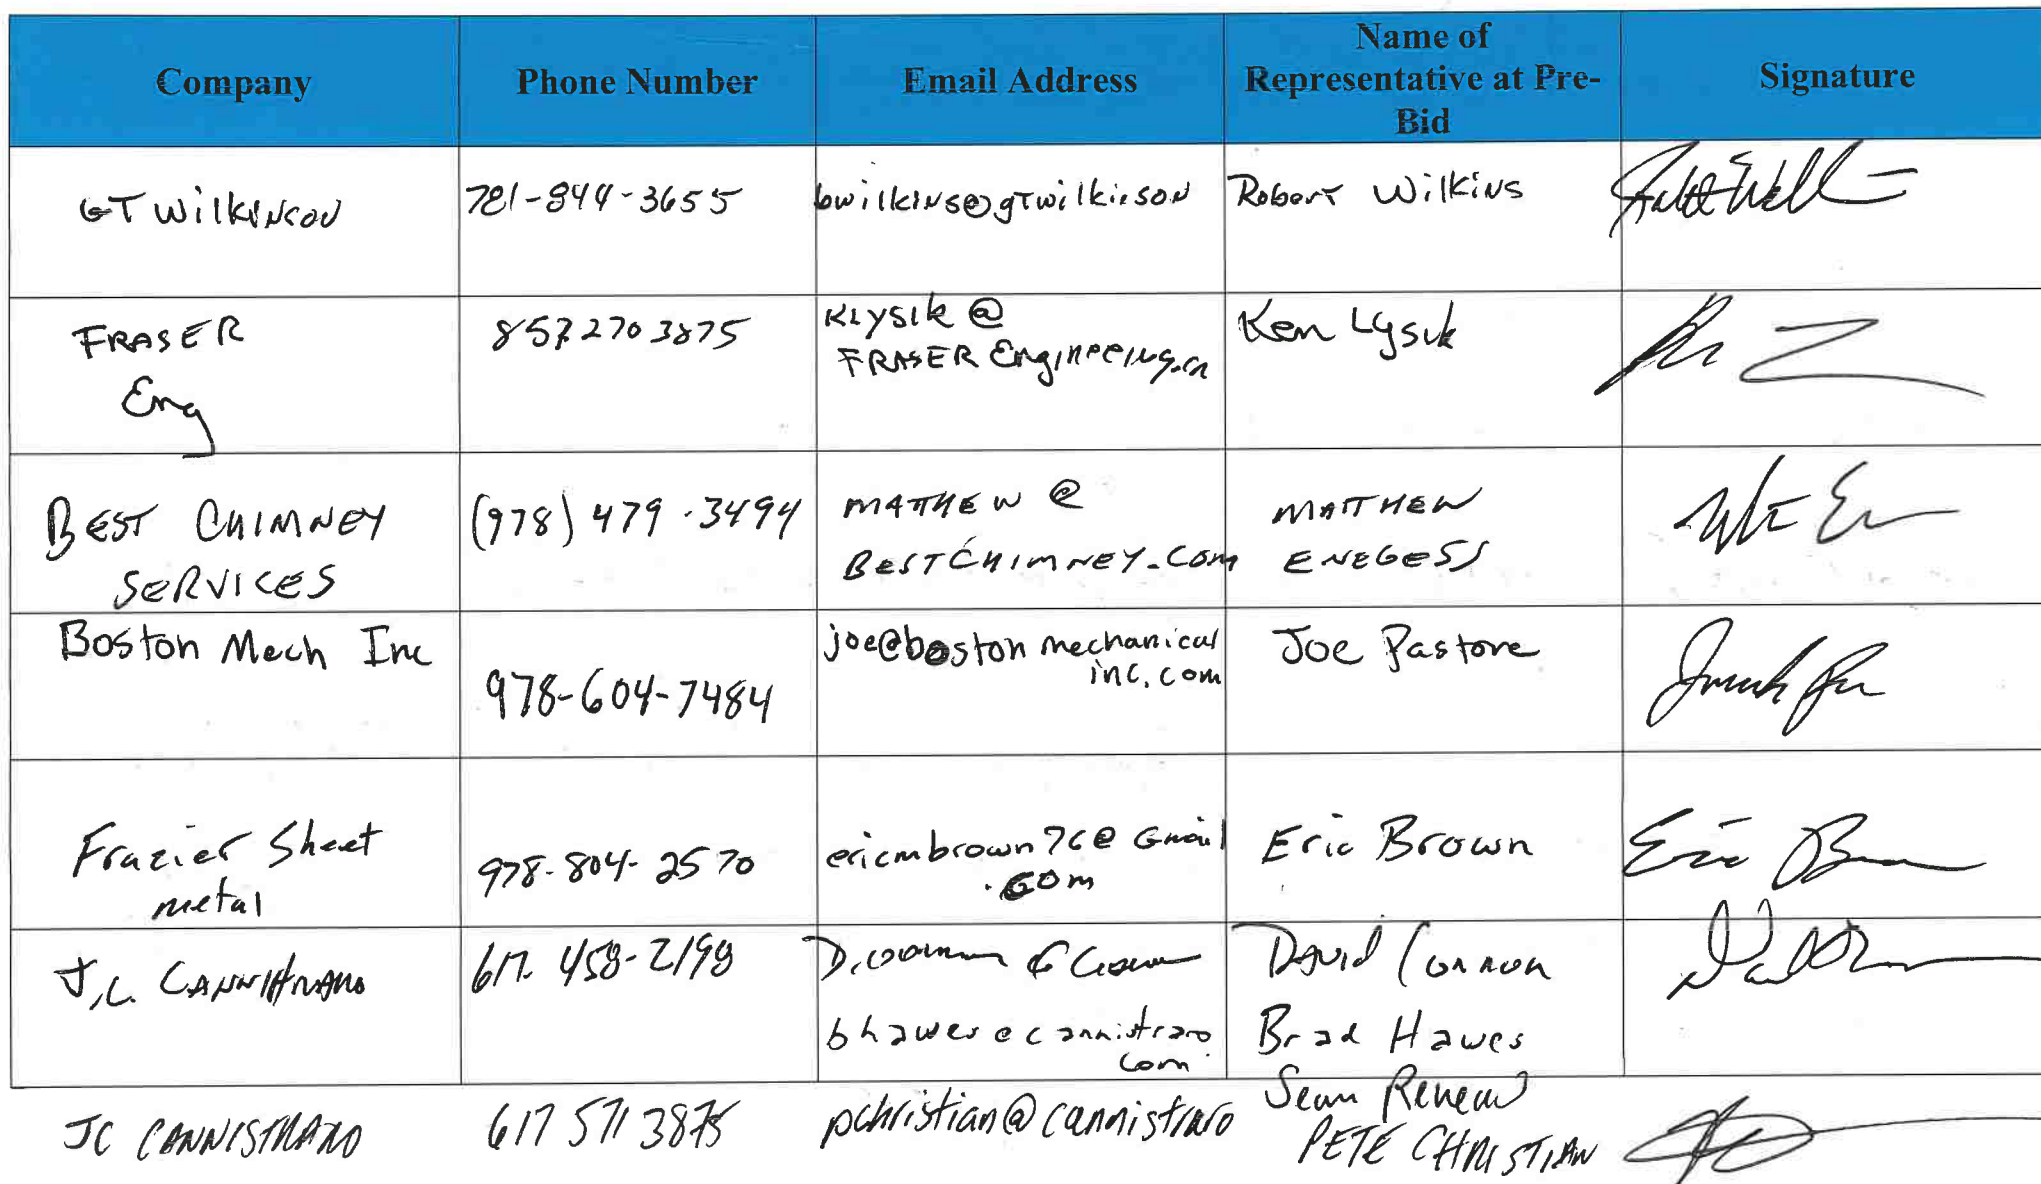 Company
Phone Number
Email Address
Name of
Representative at Pre-
Bid
Signature
GT Wilkinson
781-844-3655
bwilkins@gTwilkinson
Robert Wilkins
FRASER
Eng
857 270 3875
Klysik @
FRASER Engineering.
Ken Lysik
BEST CHIMNEY
SERVICES
(978) 479-3494
MATTHEW @
BESTCHIMNEY.COM
MATTHEW
ENEGESS
Boston Mech Inc
978-604-7484
joe@boston mechanical
inc.com
Joe Pastore
Frazier Sheet
metal
978-804-2570
ericmbrown76@Gmail
.com
Eric Brown
Eric
J.C. CANNISTRARO
617-458-2198
David Connon
bhawes@cannistraro
com
Brad Hawes
Sean
JC CANNISTRARO
617 571 3875
pchristian@cannistraro
PETE CHRISTIAN